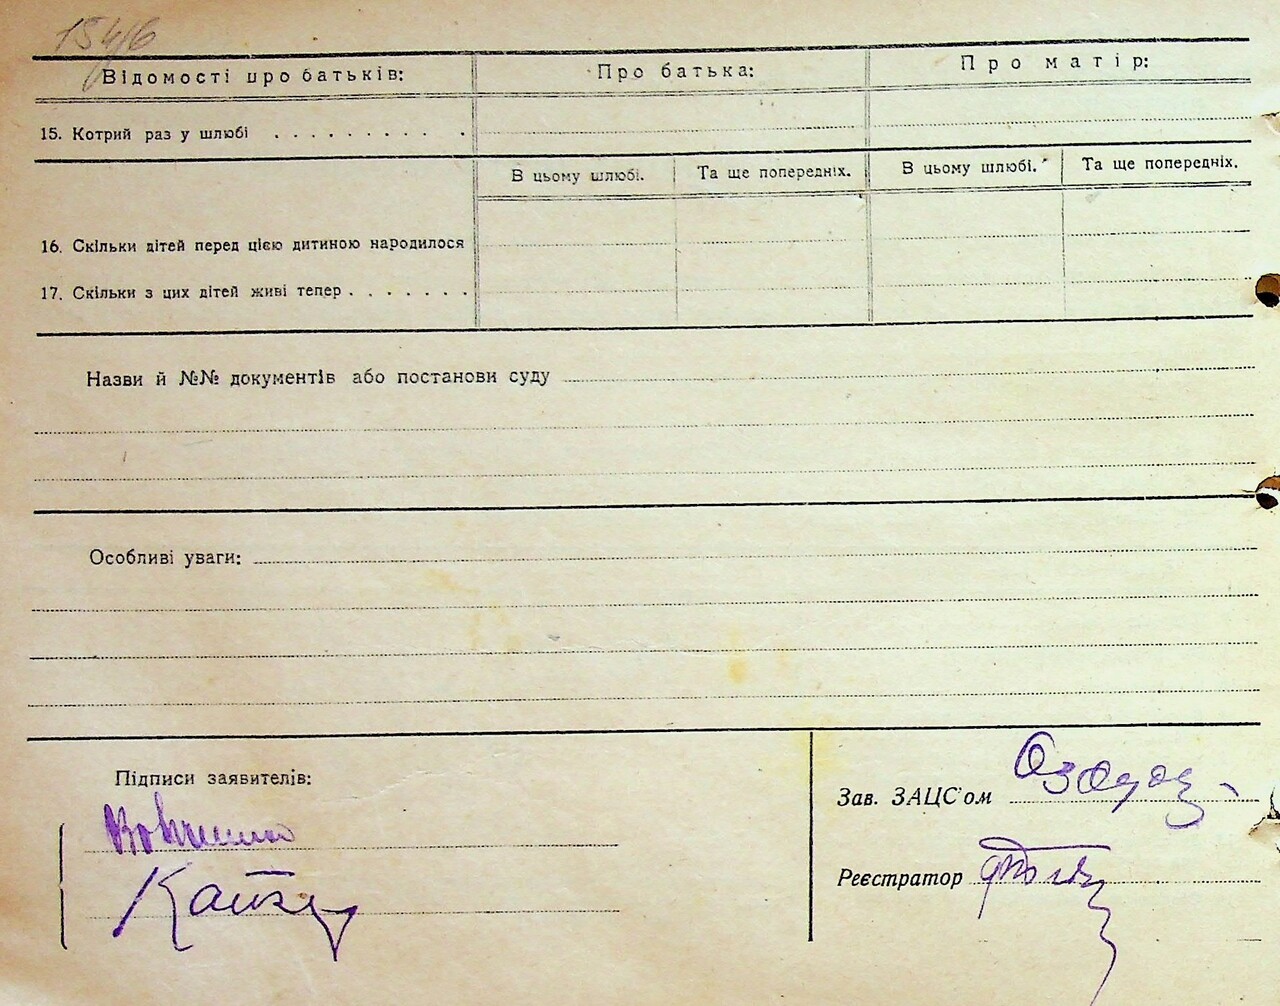 154/6
Відомості про батьків:
Про батька:
Про матір:
15. Котрий раз у шлюбі . . . . . . . . . .
В цьому шлюбі.
Та ще попередніх.
В цьому шлюбі.
Та ще попередніх.
16. Скільки дітей перед цією дитиною народилося
17. Скільки з цих дітей живі тепер . . . . . . .
Назви й №№ документів або постанови суду
Особливі уваги:
Підписи заявителів:
Зав. ЗАЦС'ом
Реєстратор